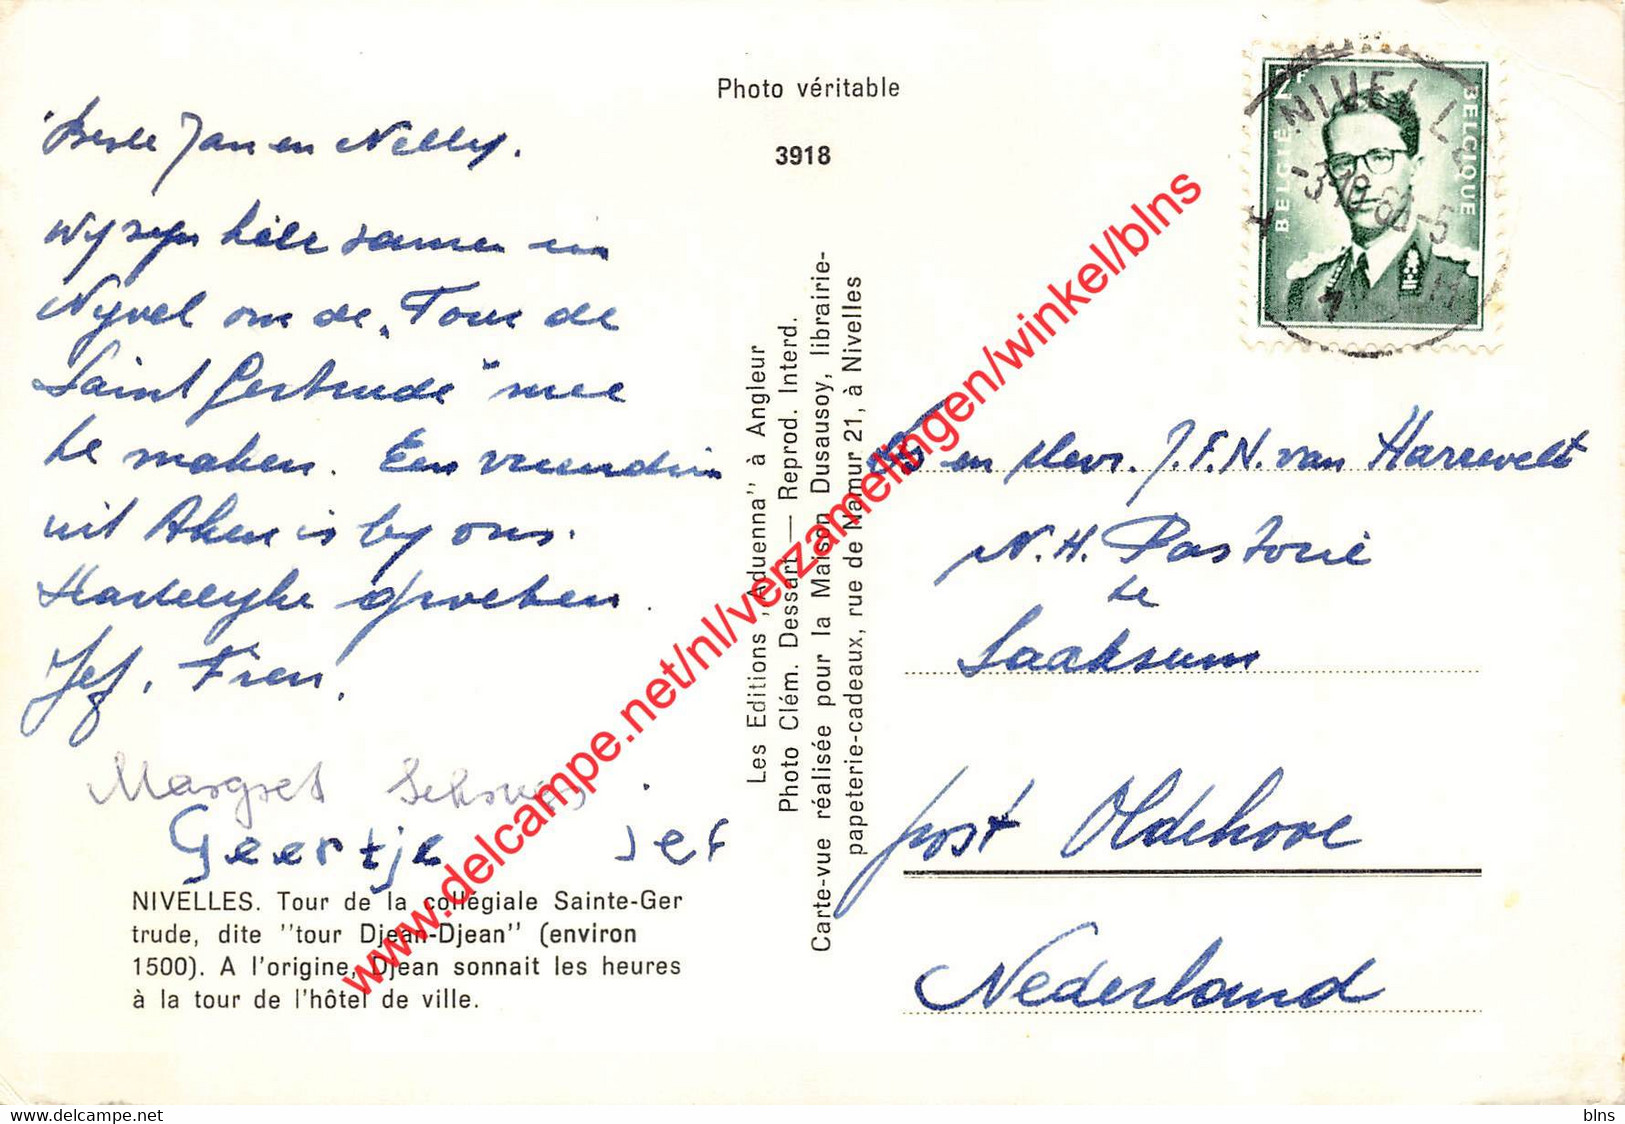 Photo véritable
3918
Beste Jan en Nelly.
Wij zijn hier samen in
Nyvel om de "Tour de
Saint Gertrude" mee
te maken. Een vriendin
uit Aken is by ons.
Hartelyke groeten.
Jef. Fien.
Margret
Geertje Jef
NIVELLES. Tour de la collégiale Sainte-Ger
trude, dite "tour Djean-Djean" (environ
1500). A l'origine, Djean sonnait les heures
à la tour de l'hôtel de ville.
Les Editions „Aduenna" à Angleur
Photo Clém. Dessart — Reprod. Interd.
Carte-vue réalisée pour la Maison Dusausoy, librairie-
papeterie-cadeaux, rue de Namur 21, à Nivelles
BELGIE BELGIQUE
NIVELLE
en Mevr. J.F.N. van Harrevelt
N.H. Pastorie
te
Saaksum
post Oldehove
Nederland
www.delcampe.net/nl/verzamelingen/winkel/blns
https://www.delcampe.net/nl/verzamelingen/winkel/blns
blns